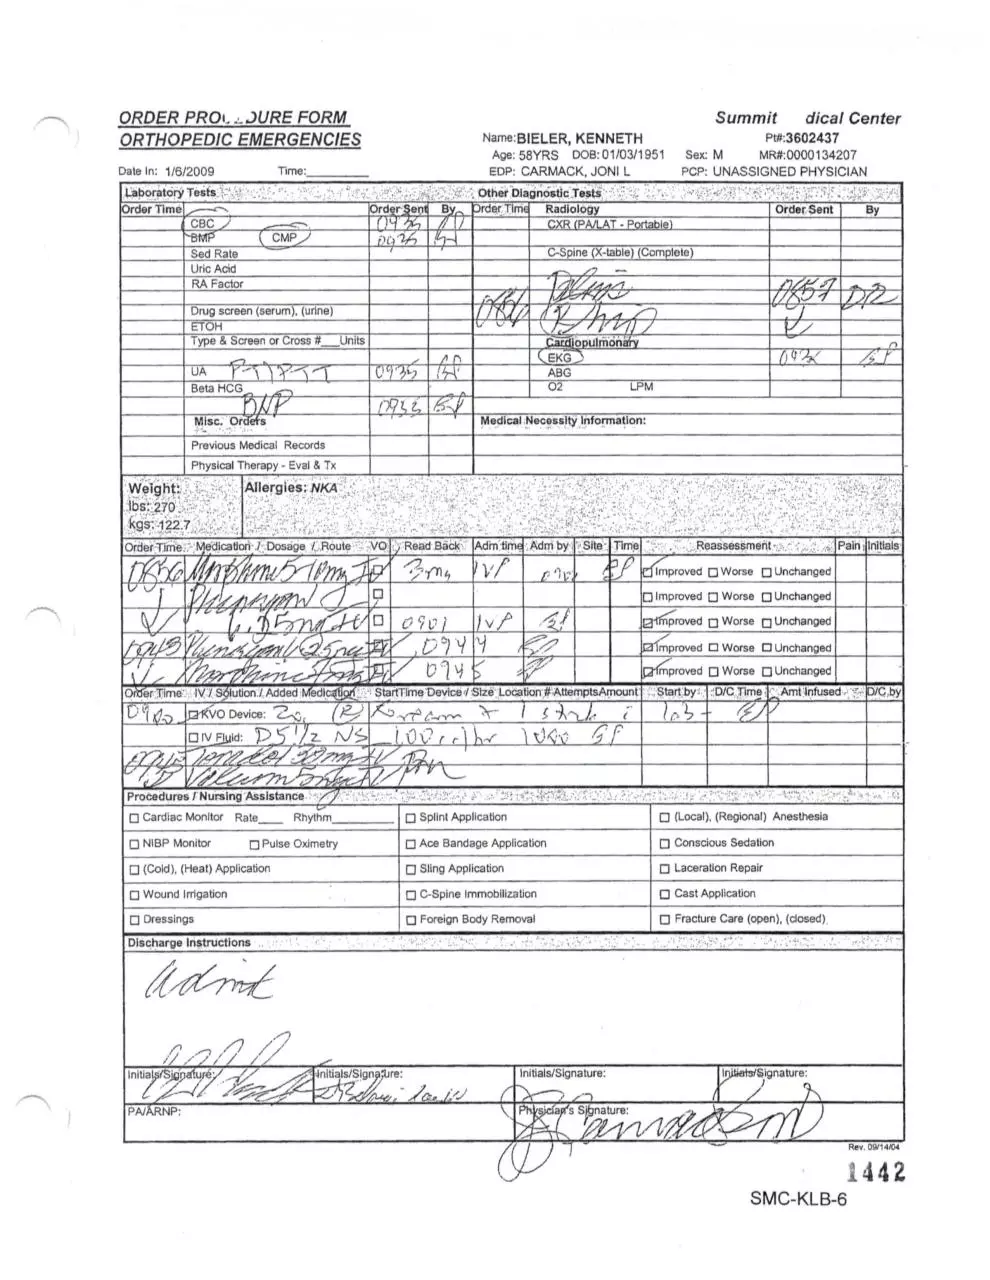 ORDER PRO JURE FORM
ORTHOPEDIC EMERGENCIES
Summit dical Center
Name:BIELER, KENNETH Pt#:3602437
Age: 58YRS DOB:01/03/1951 Sex: M MR#:0000134207
Date In: 1/6/2009 Time: EDP: CARMACK, JONI L PCP: UNASSIGNED PHYSICIAN
Laboratory Tests Other Diagnostic Tests
Order Time Order Sent By Order Time Radiology Order Sent By
CBC 0935 CXR (PA/LAT - Portable)
BMP CMP 0935
Sed Rate C-Spine (X-table) (Complete)
Uric Acid
RA Factor Pelvis 0857 DR
Drug screen (serum), (urine) 0856 R hip
ETOH
Type & Screen or Cross #___Units Cardiopulmonary
EKG
UA PT/PTT 0935 ABG
Beta HCG O2 LPM
BNP 0935
Misc. Orders Medical Necessity Information:
Previous Medical Records
Physical Therapy - Eval & Tx
Weight: Allergies: NKA
lbs: 270
kgs: 122.7
Order Time Medication / Dosage / Route VO Read Back Adm time Adm by Site Time Reassessment Pain Initials
0856 Morphine 5-10mg IV 3mg IVP EP Improved Worse Unchanged
Phenergan Improved Worse Unchanged
6.25mg IV 0901 IVP EP Improved Worse Unchanged
0943 Phenergan 6.25mg IV 0944 EP Improved Worse Unchanged
Morphine IV 0945 EP Improved Worse Unchanged
Order Time IV / Solution / Added Medication Start Time Device / Size Location # Attempts Amount Start by D/C Time Amt Infused D/C by
KVO Device: 20g (R) Forearm x 1 stick EP
IV Fluid: D5 1/2 NS 100cc/hr 1000 EP
Toradol 30mg IV
Valium 5mg IV prn
Procedures / Nursing Assistance
Cardiac Monitor Rate____ Rhythm__________ Splint Application (Local), (Regional) Anesthesia
NIBP Monitor Pulse Oximetry Ace Bandage Application Conscious Sedation
(Cold), (Heat) Application Sling Application Laceration Repair
Wound Irrigation C-Spine Immobilization Cast Application
Dressings Foreign Body Removal Fracture Care (open), (closed)
Discharge Instructions
Admit
Initials/Signature: Initials/Signature: Initials/Signature: Initials/Signature:
PA/ARNP: Physician's Signature:
Rev. 09/14/04
1442
SMC-KLB-6